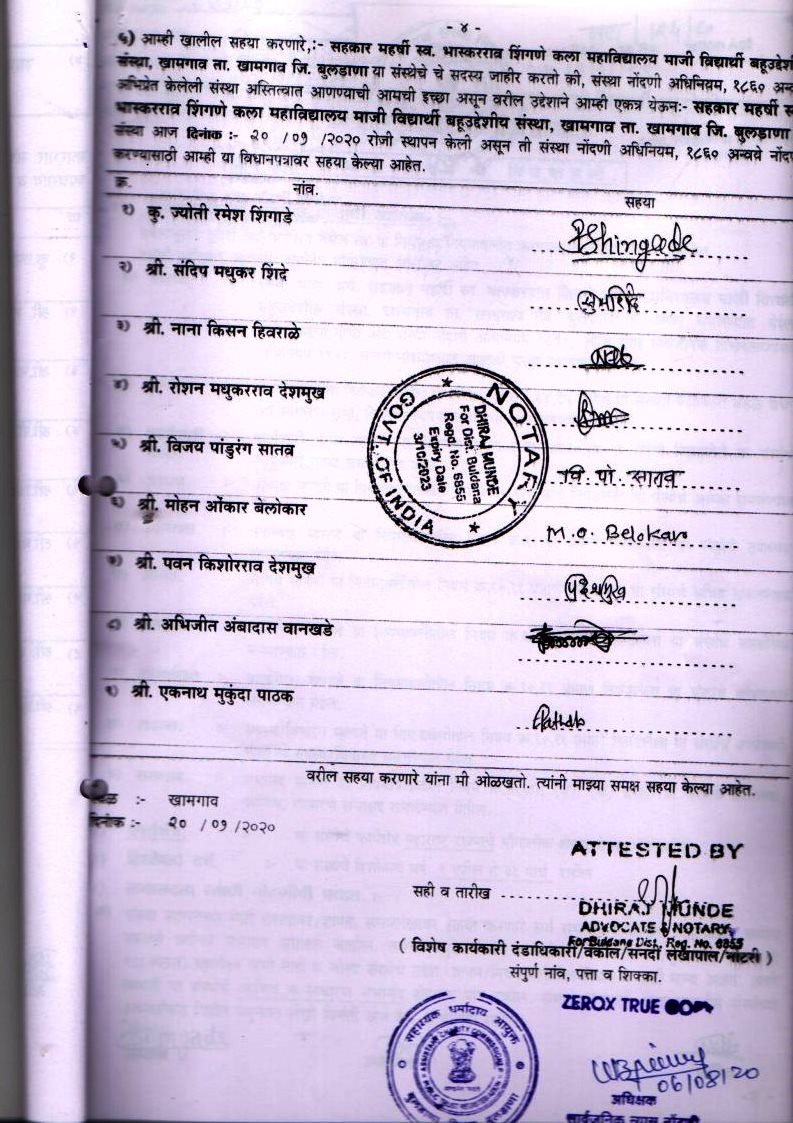 - ४ -
६) आम्ही खालील सहया करणारे,:- सहकार महर्षी स्व. भास्करराव शिंगणे कला महाविद्यालय माजी विद्यार्थी बहूउद्देशी
संस्था, खामगाव ता. खामगाव जि. बुलडाणा या संस्थेचे चे सदस्य जाहीर करतो की, संस्था नोंदणी अधिनियम, १८६० अन्व
अभिप्रेत केलेली संस्था अस्तित्वात आणण्याची आमची इच्छा असून वरील उद्देशाने आम्ही एकत्र येऊन:- सहकार महर्षी स्
भास्करराव शिंगणे कला महाविद्यालय माजी विद्यार्थी बहूउद्देशीय संस्था, खामगाव ता. खामगाव जि. बुलडाणा
संस्था आज दिनांक :- २० /०१ /२०२० रोजी स्थापन केली असून ती संस्था नोंदणी अधिनियम, १८६० अन्वये नोंद
करण्यासाठी आम्ही या विधानपत्रावर सहया केल्या आहेत.
क्र. नांव. सहया
१) कु. ज्योती रमेश शिंगाडे
RShingade
२) श्री. संदिप मधुकर शिंदे
३) श्री. नाना किसन हिवराळे
४) श्री. रोशन मधुकरराव देशमुख
५) श्री. विजय पांडुरंग सातव
वि. पां. सातव
६) श्री. मोहन ओंकार बेलोकार
M.O. Belokar
७) श्री. पवन किशोरराव देशमुख
८) श्री. अभिजीत अंबादास वानखडे
९) श्री. एकनाथ मुकुंदा पाठक
NOTARY
DHIRAJ MUNDE
For Dist. Buldana
Regd. No. 6855
Expiry Date
3/10/2023
GOVT. OF INDIA
वरील सहया करणारे यांना मी ओळखतो. त्यांनी माझ्या समक्ष सहया केल्या आहेत.
:- खामगाव
दिनांक :- २० /०१ /२०२०
ATTESTED BY
सही व तारीख
DHIRAJ MUNDE
ADVOCATE & NOTARY
For Buldana Dist., Reg. No. 6855
( विशेष कार्यकारी दंडाधिकारी/वकील/सनदी लेखापाल/नोटरी )
संपुर्ण नांव, पत्ता व शिक्का.
ZEROX TRUE COPY
सहायक धर्मादाय आयुक्त
06/08/20
अधिक्षक
सार्वजनिक न्यास नोंदणी